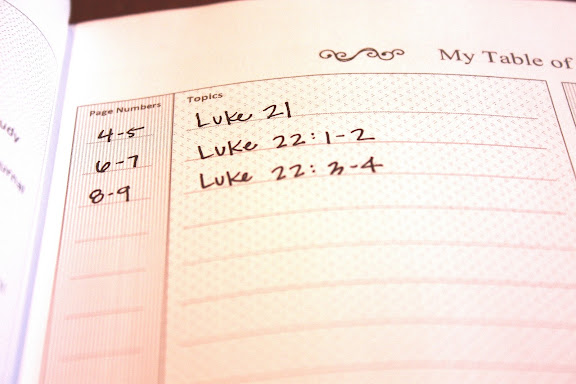 My Table of
Page Numbers Topics
4-5 Luke 21
6-7 Luke 22:1-2
8-9 Luke 22:3-4